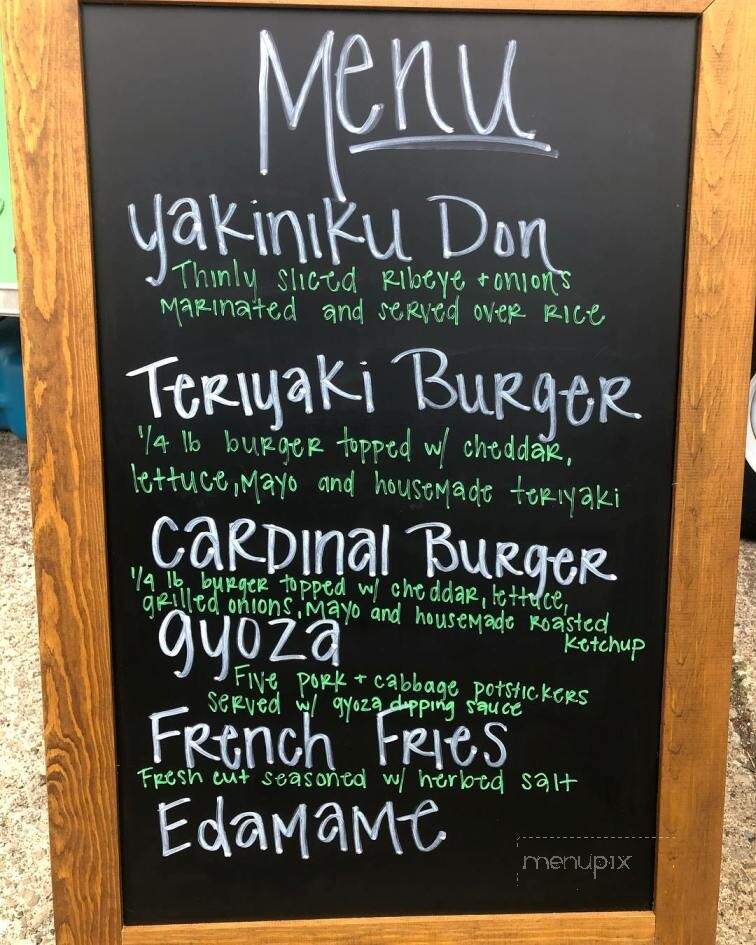 Menu
Yakiniku Don
Thinly sliced Ribeye + onions
Marinated and served over rice
Teriyaki Burger
1/4 lb burger topped w/ cheddar,
lettuce, Mayo and housemade teriyaki
Cardinal Burger
1/4 lb burger topped w/ cheddar, lettuce,
grilled onions, Mayo and housemade Roasted
Ketchup
gyoza
Five pork + cabbage potstickers
served w/ gyoza dipping sauce
French Fries
Fresh cut seasoned w/ herbed salt
Edamame
menupix